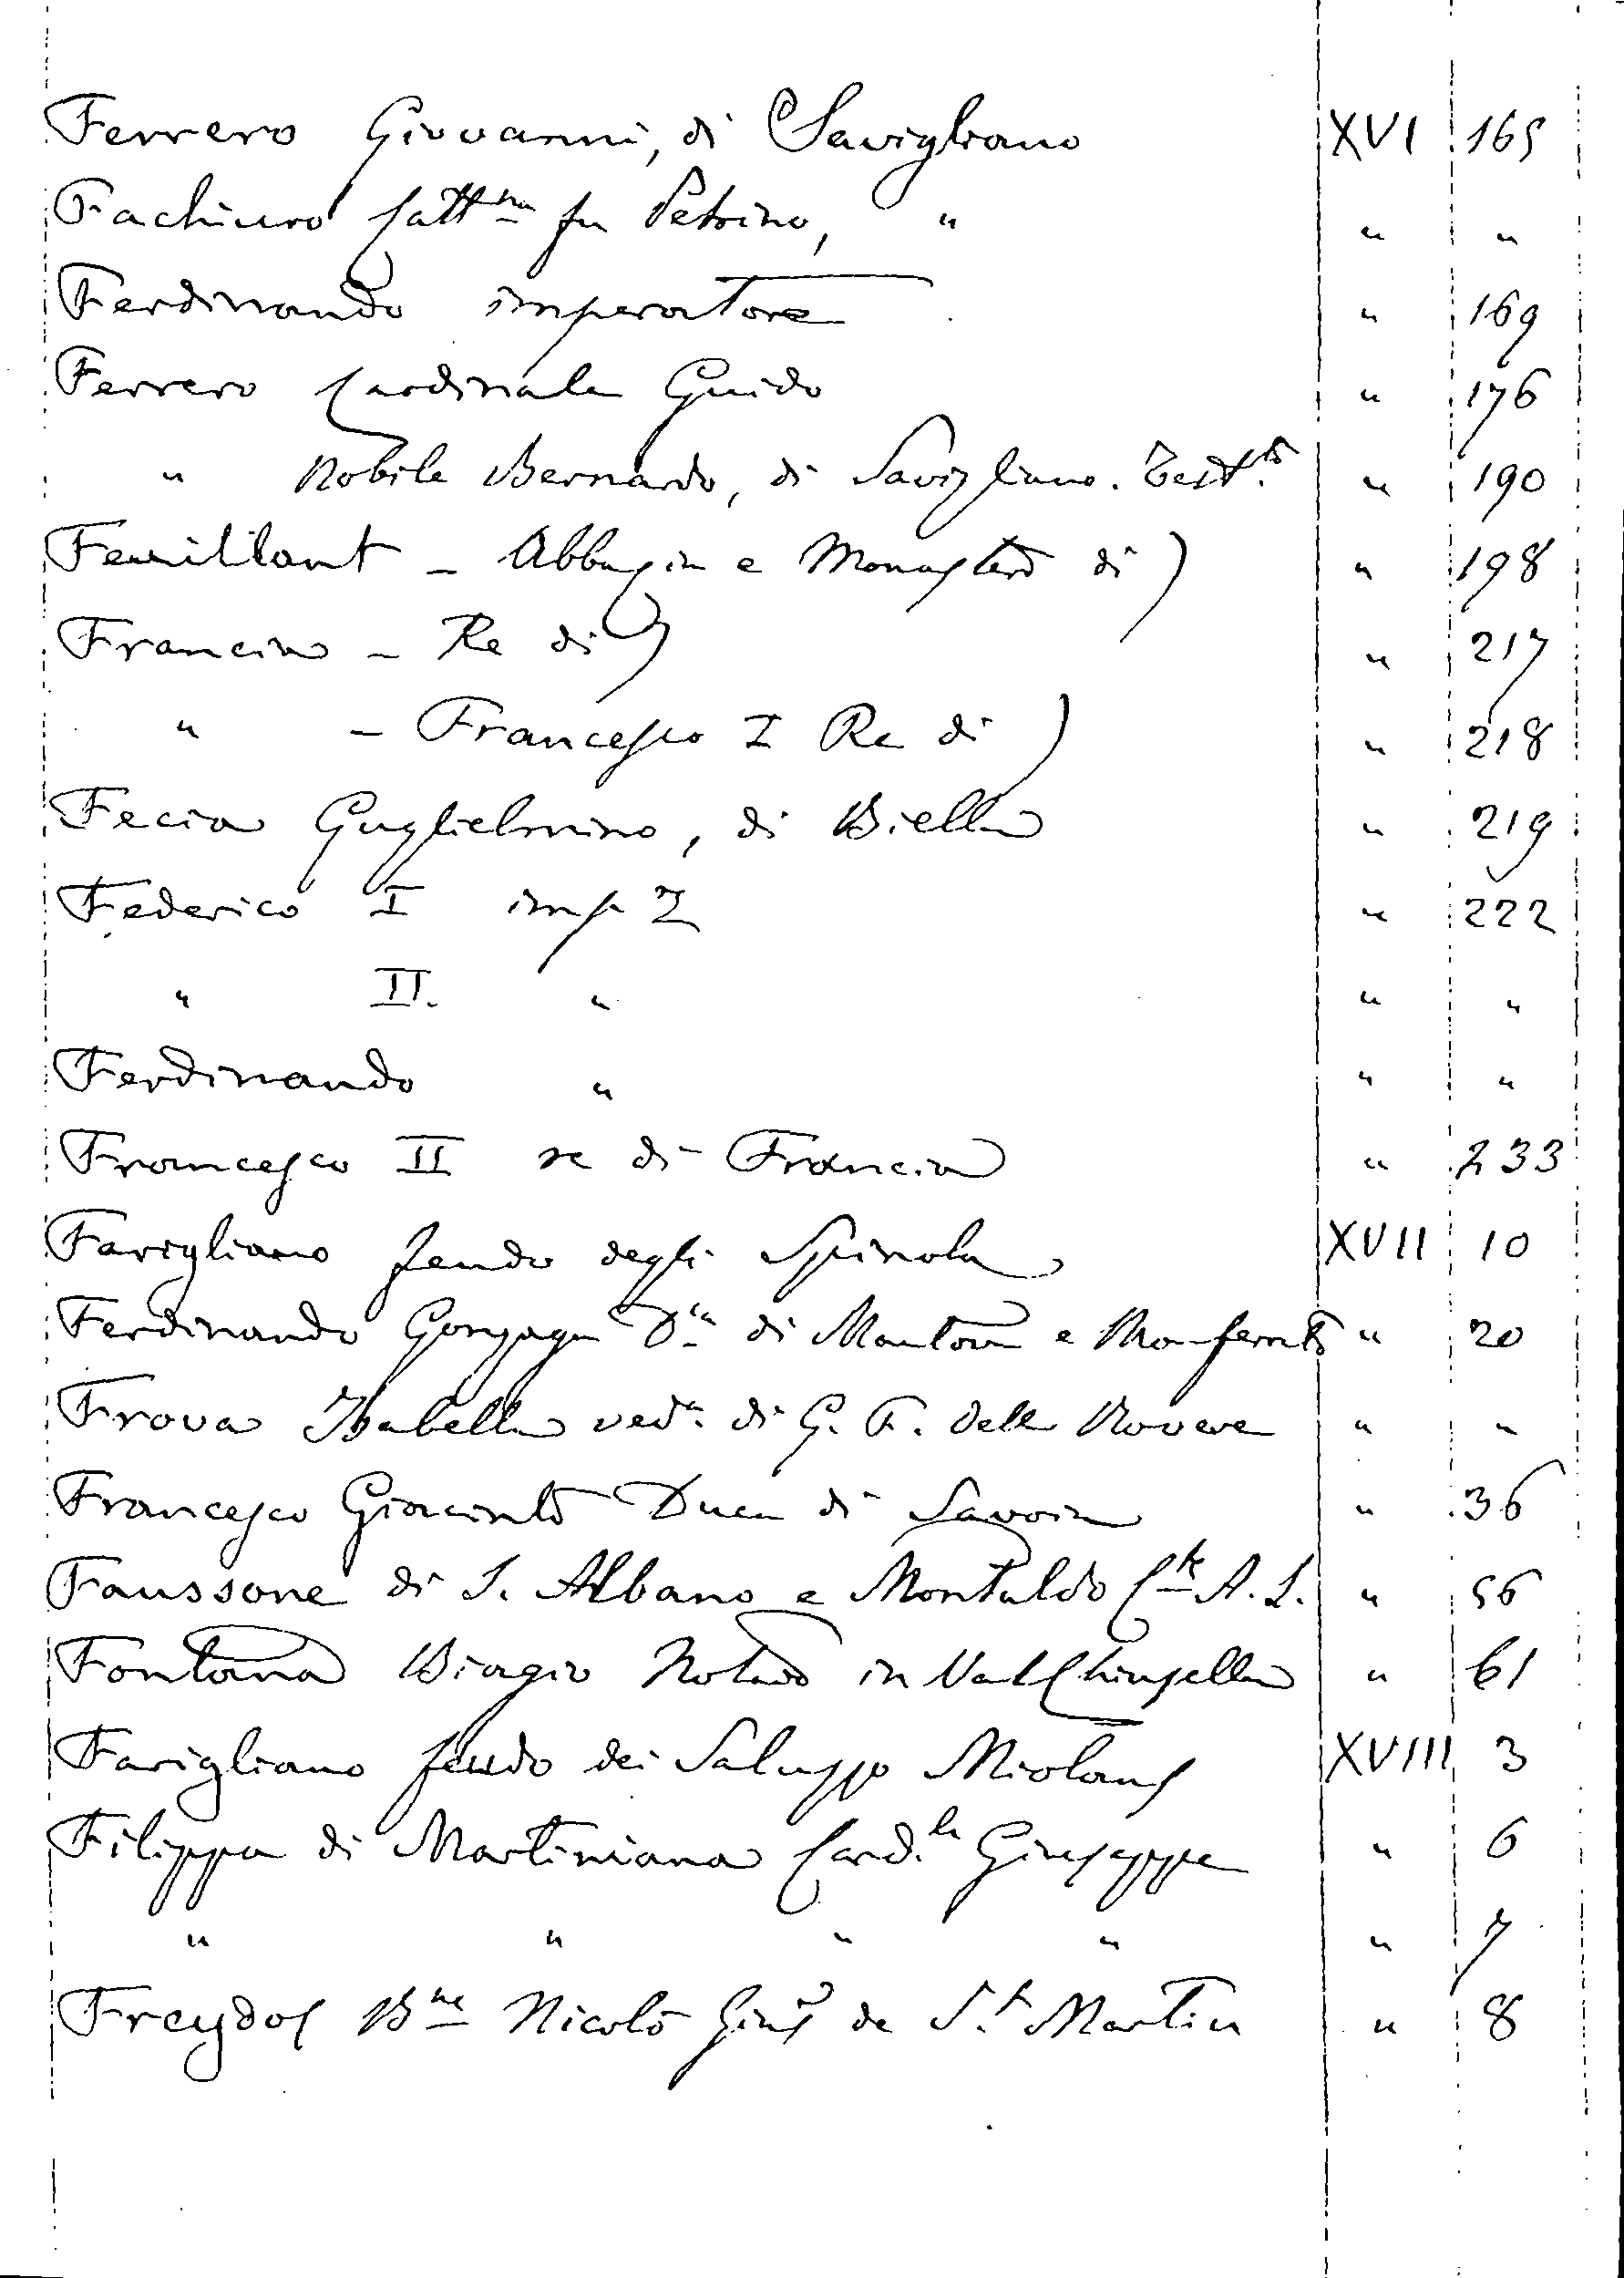 Ferrero Giovanni, di Savigliano XVI 165
Fachinero Catt.na fu Petrino, " " "
Ferdinando imperatore " 169
Ferrero Cardinale Guido " 176
" Nobile Bernardo, di Savigliano. Test.to " 190
Feuillant - Abbazia e Monastero di ) " 198
Francia - Re di ) " 217
" - Francesco I Re di ) " 218
Fecia Guglielmino, di Biella " 219
Federico I imp " 222
" II. " " "
Ferdinando " " "
Francesco II re di Francia " 233
Farigliano feudo degli Spinola XVII 10
Ferdinando Gonzaga D.ca di Mantova e Monferrato " 20
Frova Isabella ved.a di G. F. della Rovere " "
Francesco Giacinto Duca di Savoia " 36
Faussone di S. Albano e Montaldo C.te A. L. " 56
Fontana Biagio Notaio in Val Chiusella " 61
Farigliano feudo dei Saluzzo Miolans XVIII 3
Filippa di Martiniana Card.le Giuseppe " 6
" " " " " 7
Freydos B.ne Nicolò Gius. de S.t Martin " 8